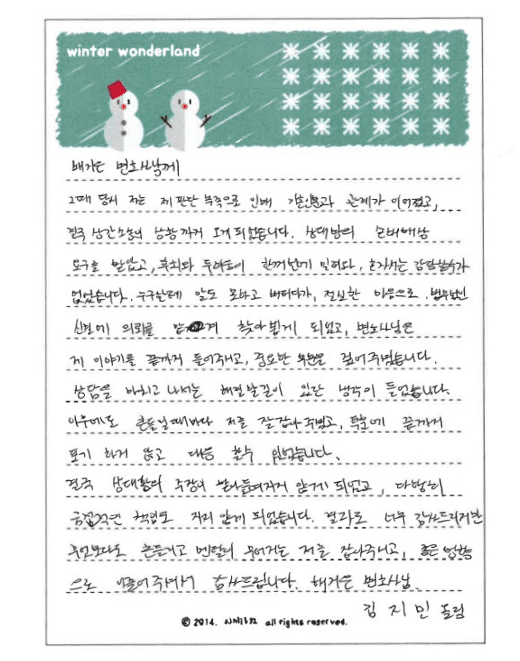 winter wonderland
배가는 변호사님께
그때 당시 저는 제 판단 부족으로 인해 기혼인과 관계가 이어졌고,
결국 상간소송의 상황까지 오게 되었습니다. 상대방의 손해배상
요구를 받았고, 후회와 두려움이 한꺼번에 밀려와, 혼자서는 감당할수가
없었습니다. 누구한테 말도 못하고 버티다가, 절실한 마음으로 법무법인
신로에 의뢰를 찾아뵙게 되었고, 변호사님은
제 이야기를 끝까지 들어주셨고, 중요한 부분을 짚어주셨습니다.
상담을 마치고 나서는 해결방법이 있단 생각이 들었습니다.
이후에도 흔들릴때마다 저를 잘 잡아 주셨고, 덕분에 끝까지
포기 하지 않고 대응 할수 있었습니다.
결국 상대방의 주장이 받아들여지지 않게 되었고, 다행히
금전적인 책임도 지지 않게 되었습니다. 결과도 너무 감사드리지만
무엇보다도 흔들리고 멘탈이 무너지는 저를 잡아주시고, 좋은 방향
으로 이끌어 주셔서 감사드립니다. 변호사님.
김지민 드림
© 2014. all rights reserved.